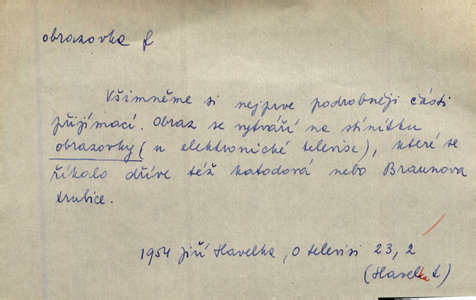 obrazovka f
Všimněme si nejprve podrobněji části
přijímací. Obraz se vytváří na stínítku
obrazovky (u elektronické televise), které se
říkalo dříve též katodová nebo Braunova
trubice.
1954 Jiří Havelka, O televisi 23, 2
(Havelka t)